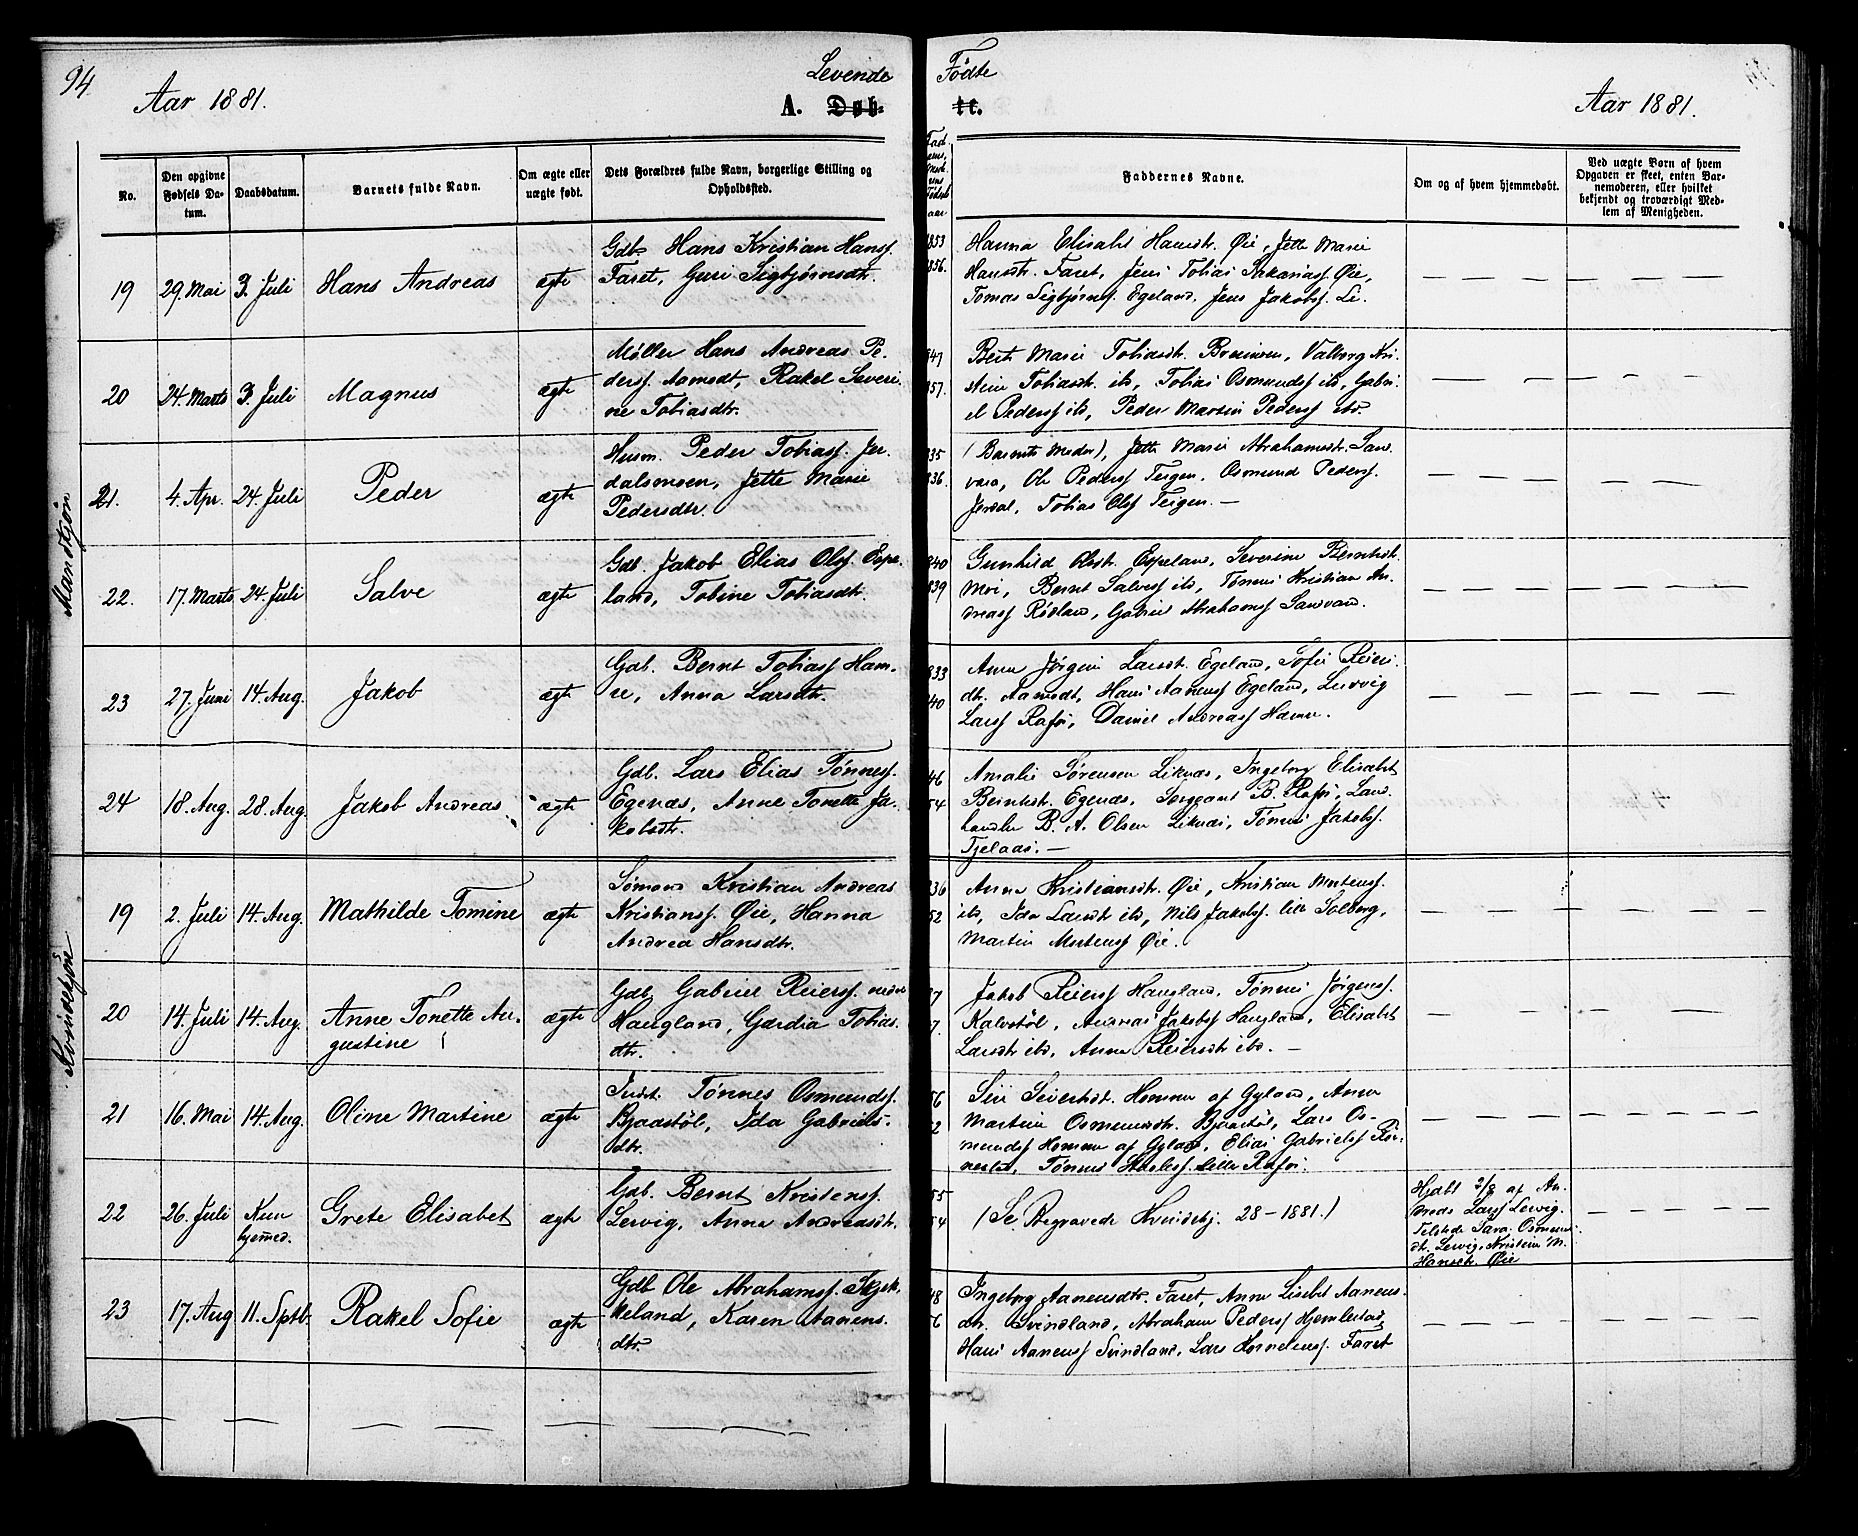 94.
Aar 1881.
Levende
A. Døb-
Født
te.
Aar 1881.
No.
Den opgivne
Fødsels Da-
tum.
Daabsdatum.
Barnets fulde Navn.
Om ægte eller
uægte født.
Dets Forældres fulde Navn, borgerlige Stilling og
Opholdssted.
Faddernes Navne.
Om og af hvem hjemmedøbt.
Ved uægte Børn af hvem
Opgaven er skeet, enten Bar-
nemoderen, eller hvilket
bekjendt og troværdigt Med-
lem af Menigheden.
Mandkjøn
19
29. Mai
3. Juli
Hans Andreas
ægte
Gdb. Hans Kristian Hanss.
Faret, Guri Sigbjørnsdtr.
1853
1856.
Hanna Elisabt Hansdtr. Øie, Jette Marie
Hansdtr. Faret, Jens Tobias Sakariass. Øie,
Tomas Sigbjørns. Egeland, Jens Jakobs. Li.
20
24. Marts
3. Juli
Magnus
ægte
Møller Hans Andreas Pe-
derss. Aamodt, Rakel Severi-
ne Tobiasdtr.
847
857.
Berte Marie Tobiasdtr. Valborg Kri-
stine Tobiasdtr. ibd, Tobias Osmunds ibd, Gabri-
el Peders ibd, Peder Martin Peders ibd.
21.
4. Apr.
24. Juli
Peder
ægte
Husm. Peder Tobiass. Jer-
dalsmoen, Jette Marie
Pedersdtr.
835
836.
(Barnets Moder), Jette Marie Abrahamsdtr. San-
vara, Ole Peders Teigen, Osmund Peders.
Jerdal, Tobias Ols Teigen. —
22.
17. Marts
24. Juli
Salve
ægte
Gdb. Jakob Elias Ols. Espe-
land, Tobine Tobiasdtr.
840
839
Gunhild Olsdtr. Espeland, Severine Berntsdtr.
Moi, Bernt Salves ibd, Tønnes Kristian An-
dreass Rødland, Gabriel Abrahams Sanvand.
23
27. Juni
14. Aug.
Jakob
ægte
Gdb. Bernt Tobiass Ham-
re, Anna Larsdtr.
833
40
Anne Jørgine Larsdtr. Egeland, Sofie Reiers-
dtr. Aamodt, Hans Aanens Egeland, Ludvig
Larss Rafos, Daniel Andreass Hamre.
24
18. Aug.
28. Aug.
Jakob Andreas
ægte
Gdb. Lars Elias Tønness.
Egenæs, Anne Tonette Ja-
kobsdtr.
46
54
Amalie Sørensen Liknæs, Ingeborg Elisabet
Berntsdtr. Egenæs, Sergeant B. Rafos, Land-
handler B. A. Olsen Liknæs, Tønnes Jakobs.
Tjelaas. —
Kvindekjøn
19
2. Juli
14. Aug.
Mathilde Tomine
ægte
Sømand Kristian Andreas
Kristianss. Øie, Hanna
Andrea Hansdtr.
836
52
Anna Kristiansdtr. Øie, Kristian Mortens.
ibd, Ida Larsdtr ibd, Nils Jakobs. lille Solberg,
Martin Mortens Øie.
20
14. Juli
14. Aug.
Anne Tonette Au-
gustine
ægte
Gdb. Gabriel Reierss. nedre
Haugland, Gærdia Tobias-
dtr.
7
7.
Jakob Reierss Haugland, Tønnes Jørgens.
Kalvstøl, Andreas Jakobs Haugland, Elisabet
Larsdtr ibd, Anna Reiersdtr ibd. —
21
16. Mai
14. Aug.
Oline Martine
ægte
Inds. Tønnes Osmunds.
Bjaastøl, Ida Gabriels-
dtr.
56
2
Siri Sivertsdt. Homme af Gyland, Anne
Martine Osmundsdtr. Bjaastøl, Lars Os-
munds Homme af Gyland, Elias Gabriels
Tønnes lille Rafos.
22
26. Juli
Kun
hjemmed.
Grete Elisabet
ægte
Gdb. Bernt Kristens.
Lervig, Anna Andreasdtr.
55
54
(Se Begravede Kvindekj. 28 - 1881.)
Hjdbt 2/8 af An-
dreas Larss Lervig.
Tilstede Sara Osmun-
dt. Lervig, Kristine M.
Hansdtr. Øie
23
17. Aug
11. Sptb.
Rakel Sofie
ægte
Gdb Ole Abrahams. Skjek-
keland, Karen Aanens-
dtr.
48
6
Ingeborg Aanensdtr. Faret, Anne Lisebet Aanens-
dtr. Svindland, Abraham Peders Hjemlestad,
Hans Aanens Svindland, Lars Kornelius. Faret